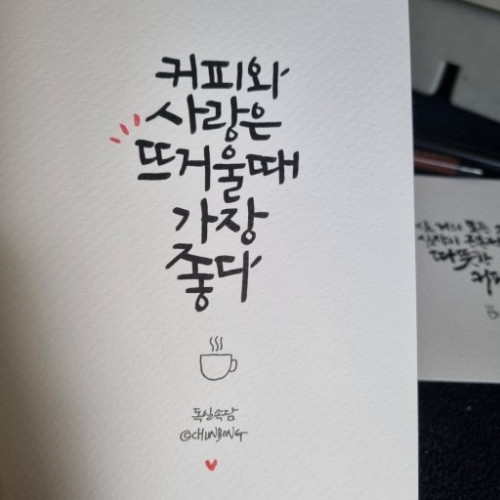 커피와
사랑은
뜨거울때
가장
좋다
독일속담
©CHUNBONG
따뜻한